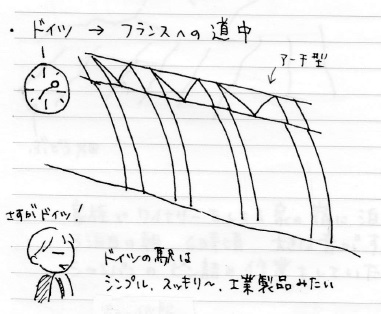 ・ドイツ → フランスへの道中
アーチ型
さすがドイツ!
ドイツの駅は
シンプル、スッキリ〜、工業製品みたい